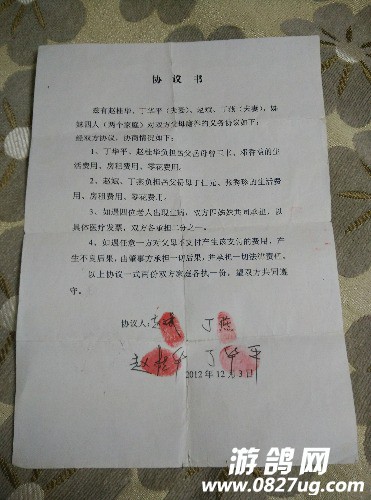 协议书
兹有赵桂华、丁华平(夫妻)、赵斌、丁燕(夫妻),姊
妹四人(两个家庭)对双方父母赡养的义务协议如下:
经双方协议,协商情况如下:
1、丁华平、赵桂华负担岳父岳母
活费用、房租费用、零花费用。
2、赵斌、丁燕负担岳父母丁仁元、张秀珍的生活费
用、房租费用、零花费用。
3、如遇四位老人出现生病,双方四姊妹共同承担,以
具体医疗发票,双方各承担二分之一。
4、如遇任意一方对父母不支付产生该支付的费用,产
生不良后果,由肇事方承担一切后果,并承担一切法律责任。
以上协议一式两份双方家庭各执一份,望双方共同遵
守。
协议人: 丁燕
赵桂华 丁华平
2012年12月3日
游鸽网
www.0827ug.com